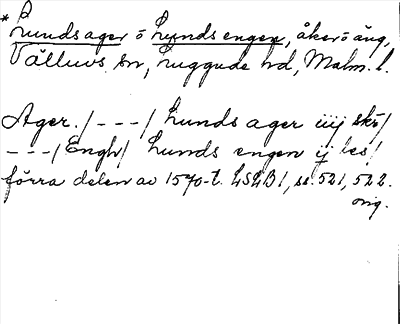 * Lunds ager o Lunds engen, åker o äng,
Välluvs sn, Luggude hd, Malm. l.
Ager. /---/ Lunds ager iiij skö/
---/ Engh/ Lunds engen ij les/
förra delen av 1570-t. LSLB1, ss. 521, 522.
orig.